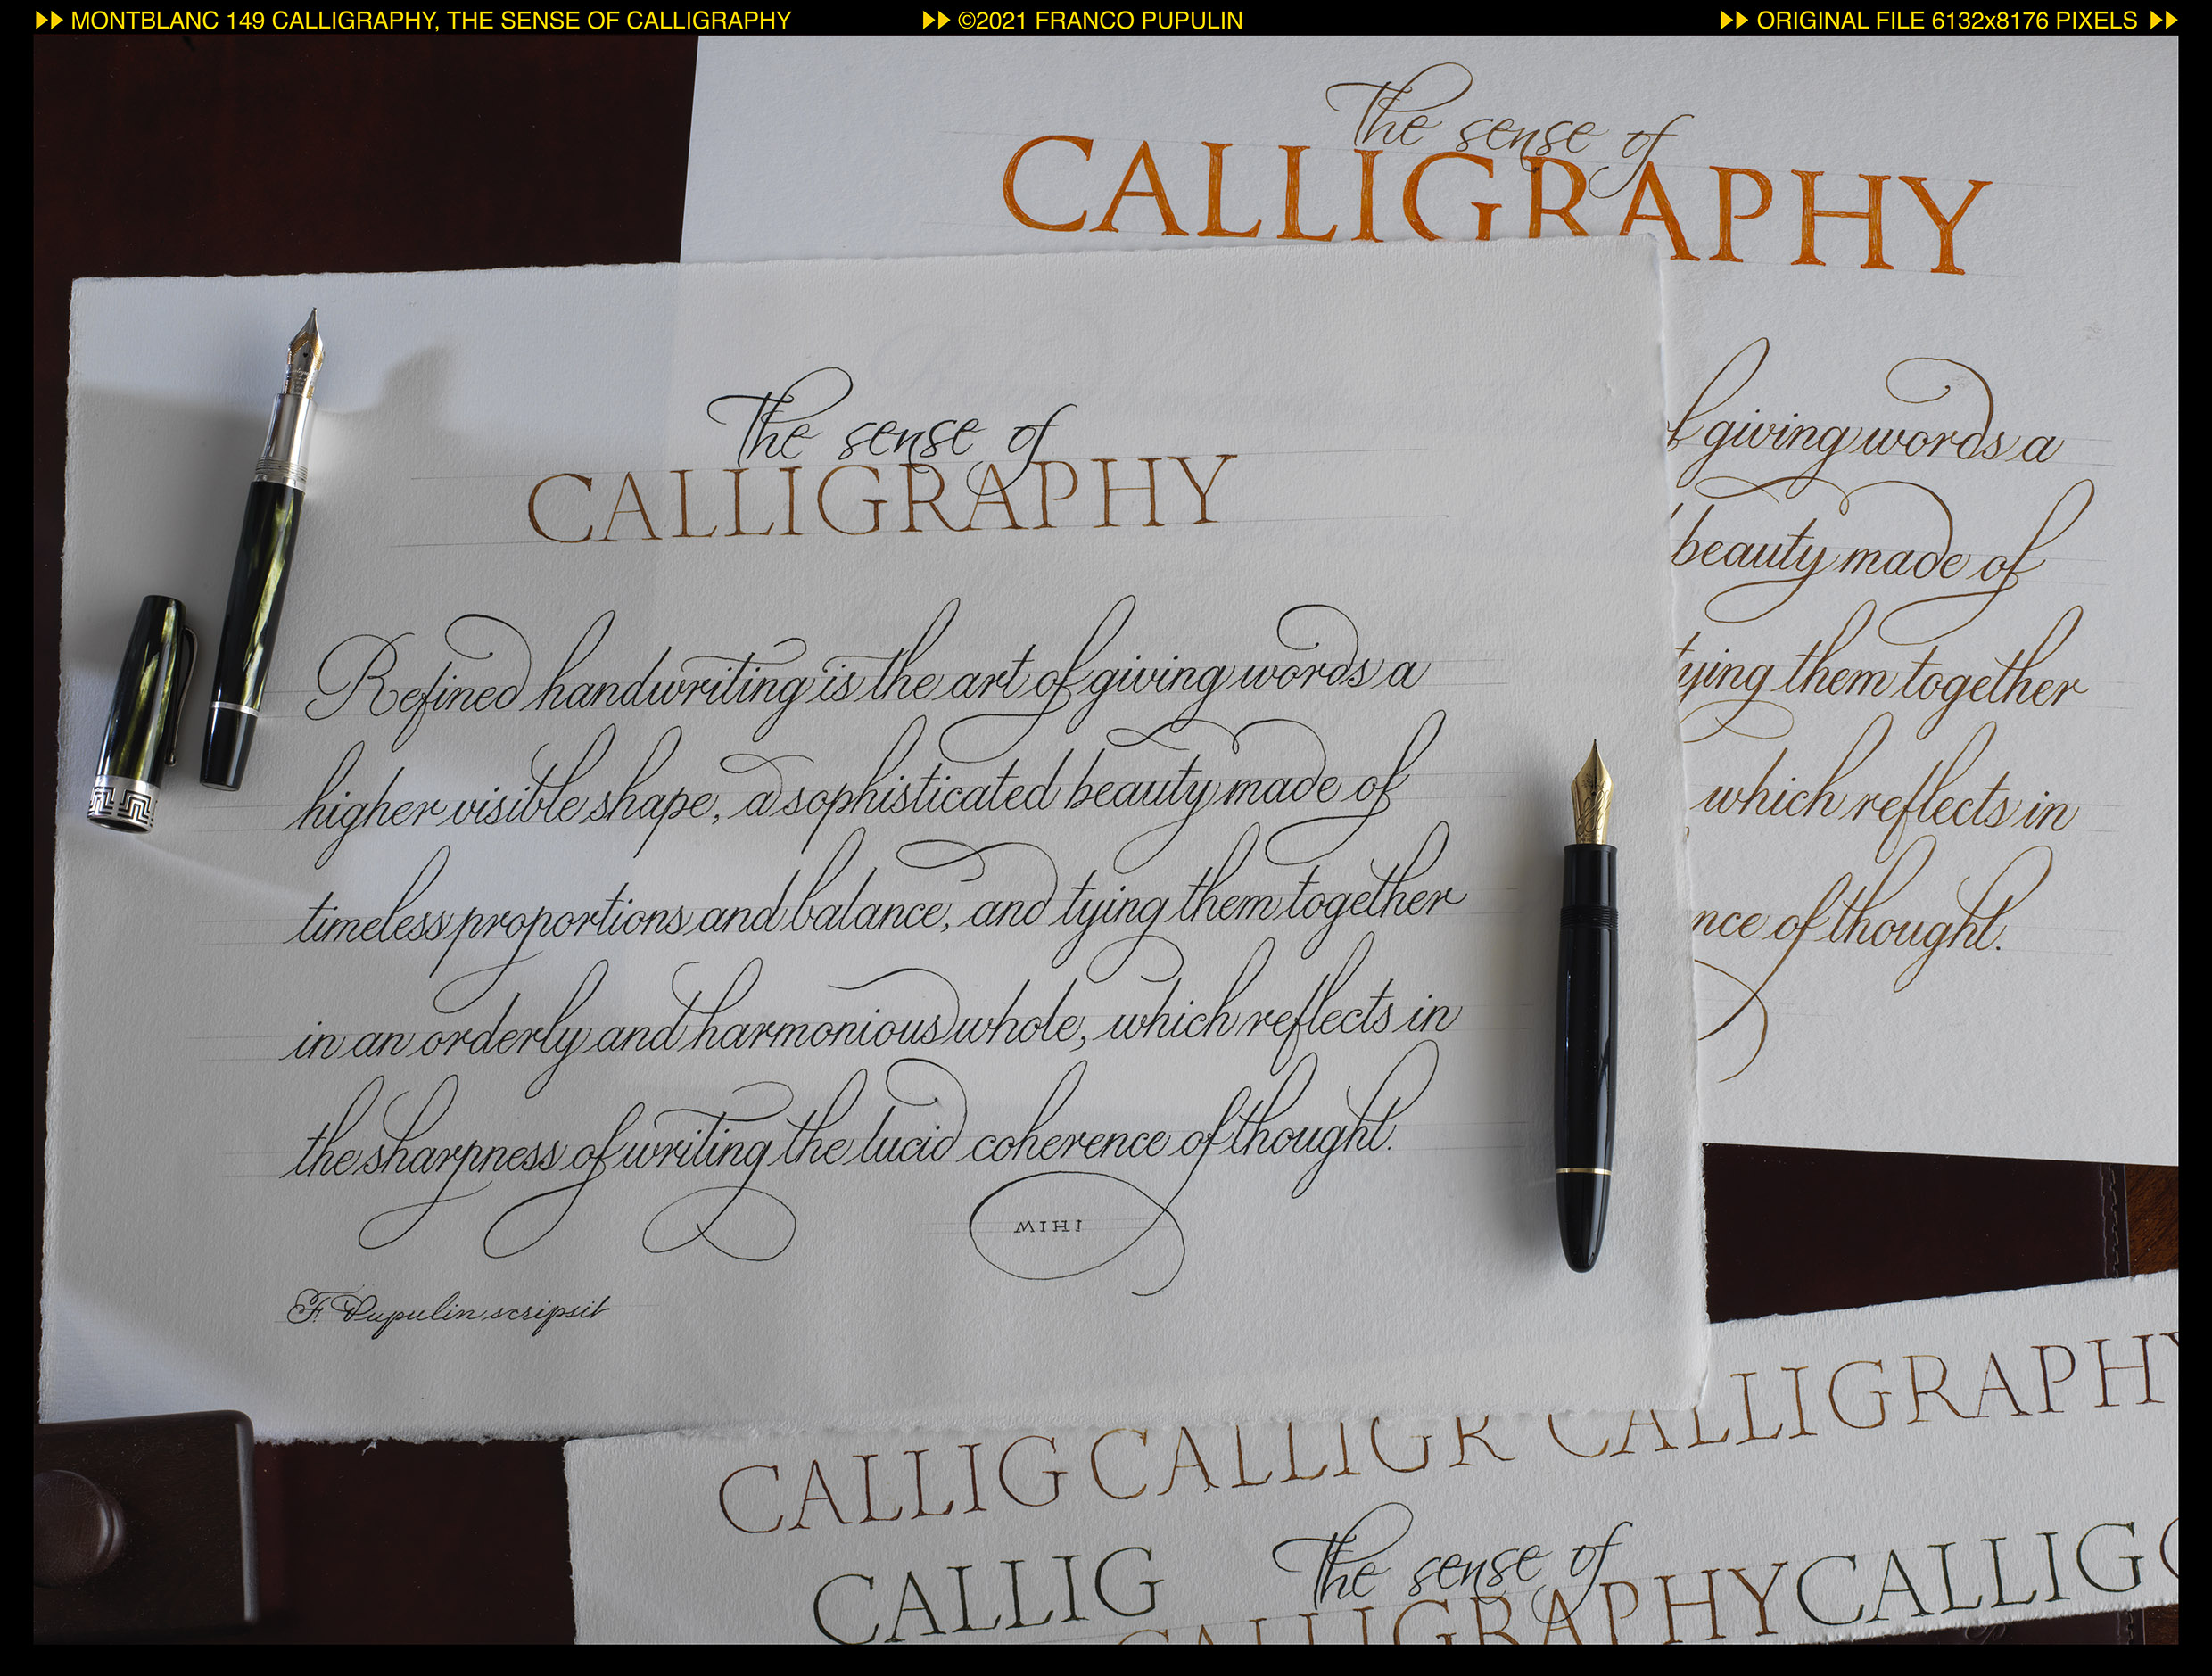 MONTBLANC 149 CALLIGRAPHY, THE SENSE OF CALLIGRAPHY
©2021 FRANCO PUPULIN
ORIGINAL FILE 6132x8176 PIXELS
The sense of
CALLIGRAPHY
The sense of
CALLIGRAPHY
Refined handwriting is the art of giving words a
higher visible shape, a sophisticated beauty made of
timeless proportions and balance, and tying them together
in an orderly and harmonious whole, which reflects in
the sharpness of writing the lucid coherence of thought.
MIHI
F. Pupulin scripsit
of giving words a
beauty made of
tying them together
which reflects in
nce of thought.
CALLIG CALLIGR CALLIGRAPHY
The sense of
CALLIG CALLIGRAPHY CALLIG